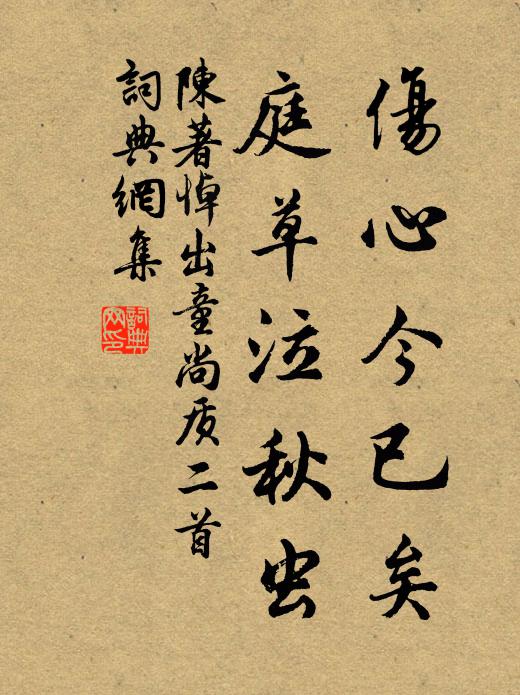 傷心今已矣
庭草泣秋虫
陳著悼出童尚质二首
詞典網集
詞典网印